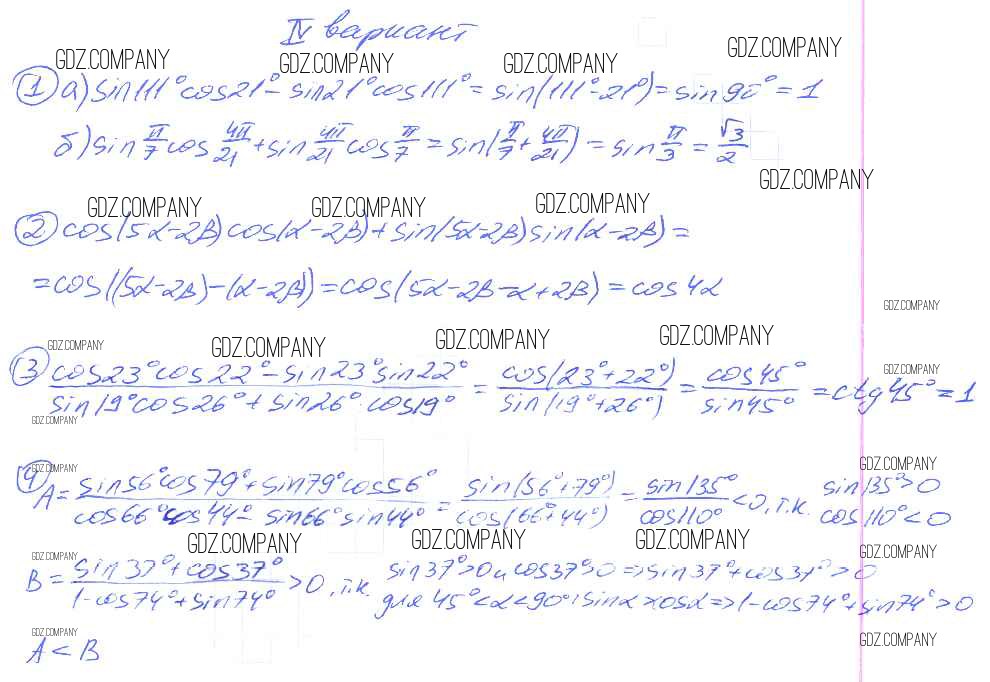 IV вариант
GDZ.COMPANY GDZ.COMPANY GDZ.COMPANY GDZ.COMPANY
① а) sin111°cos21° - sin21°cos111° = sin(111°-21°) = sin90° = 1
б) sin π/7 cos 4π/21 + sin 4π/21 cos π/7 = sin(π/7 + 4π/21) = sin π/3 = √3/2
GDZ.COMPANY
GDZ.COMPANY GDZ.COMPANY GDZ.COMPANY
② cos(5α-2β)cos(α-2β)+sin(5α-2β)sin(α-2β) =
= cos((5α-2β)-(α-2β)) = cos(5α-2β-α+2β) = cos4α
GDZ.COMPANY
GDZ.COMPANY GDZ.COMPANY GDZ.COMPANY GDZ.COMPANY
③ (cos23°cos22° - sin23°sin22°)/(sin19°cos26° + sin26°·cos19°) = cos(23°+22°)/sin(19°+26°) = cos45°/sin45° = ctg45° = 1
GDZ.COMPANY
GDZ.COMPANY
GDZ.COMPANY GDZ.COMPANY
④ A = (sin56°cos79° + sin79°cos56°)/(cos66°cos44° - sin66°sin44°) = sin(56°+79°)/cos(66°+44°) = sin135°/cos110° < 0, т.к. sin135°>0 cos110°<0
GDZ.COMPANY GDZ.COMPANY GDZ.COMPANY
GDZ.COMPANY GDZ.COMPANY
B = (sin37°+cos37°)/(1-cos74°+sin74°) > 0, т.к. sin37°>0 и cos37°>0 => sin37°+cos37°>0
для 45°<α<90°: sinα>cosα => 1-cos74°+sin74°>0
GDZ.COMPANY GDZ.COMPANY
A < B